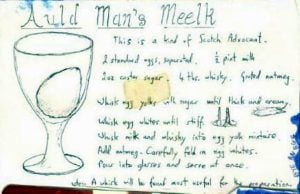 Auld Man's Meelk
This is a kind of Scotch Advocaat.
2 standard eggs, separated, ½ pint milk
2oz caster sugar, 4 tbs. whisky. Grated nutmeg.
Whisk egg yolks with sugar until thick and creamy.
Whisk egg whites until stiff.
Whisk milk and whisky into egg yolk mixture.
Add nutmeg. Carefully fold in egg whites.
Pour into glasses and serve at once.
A which will be found most useful for the